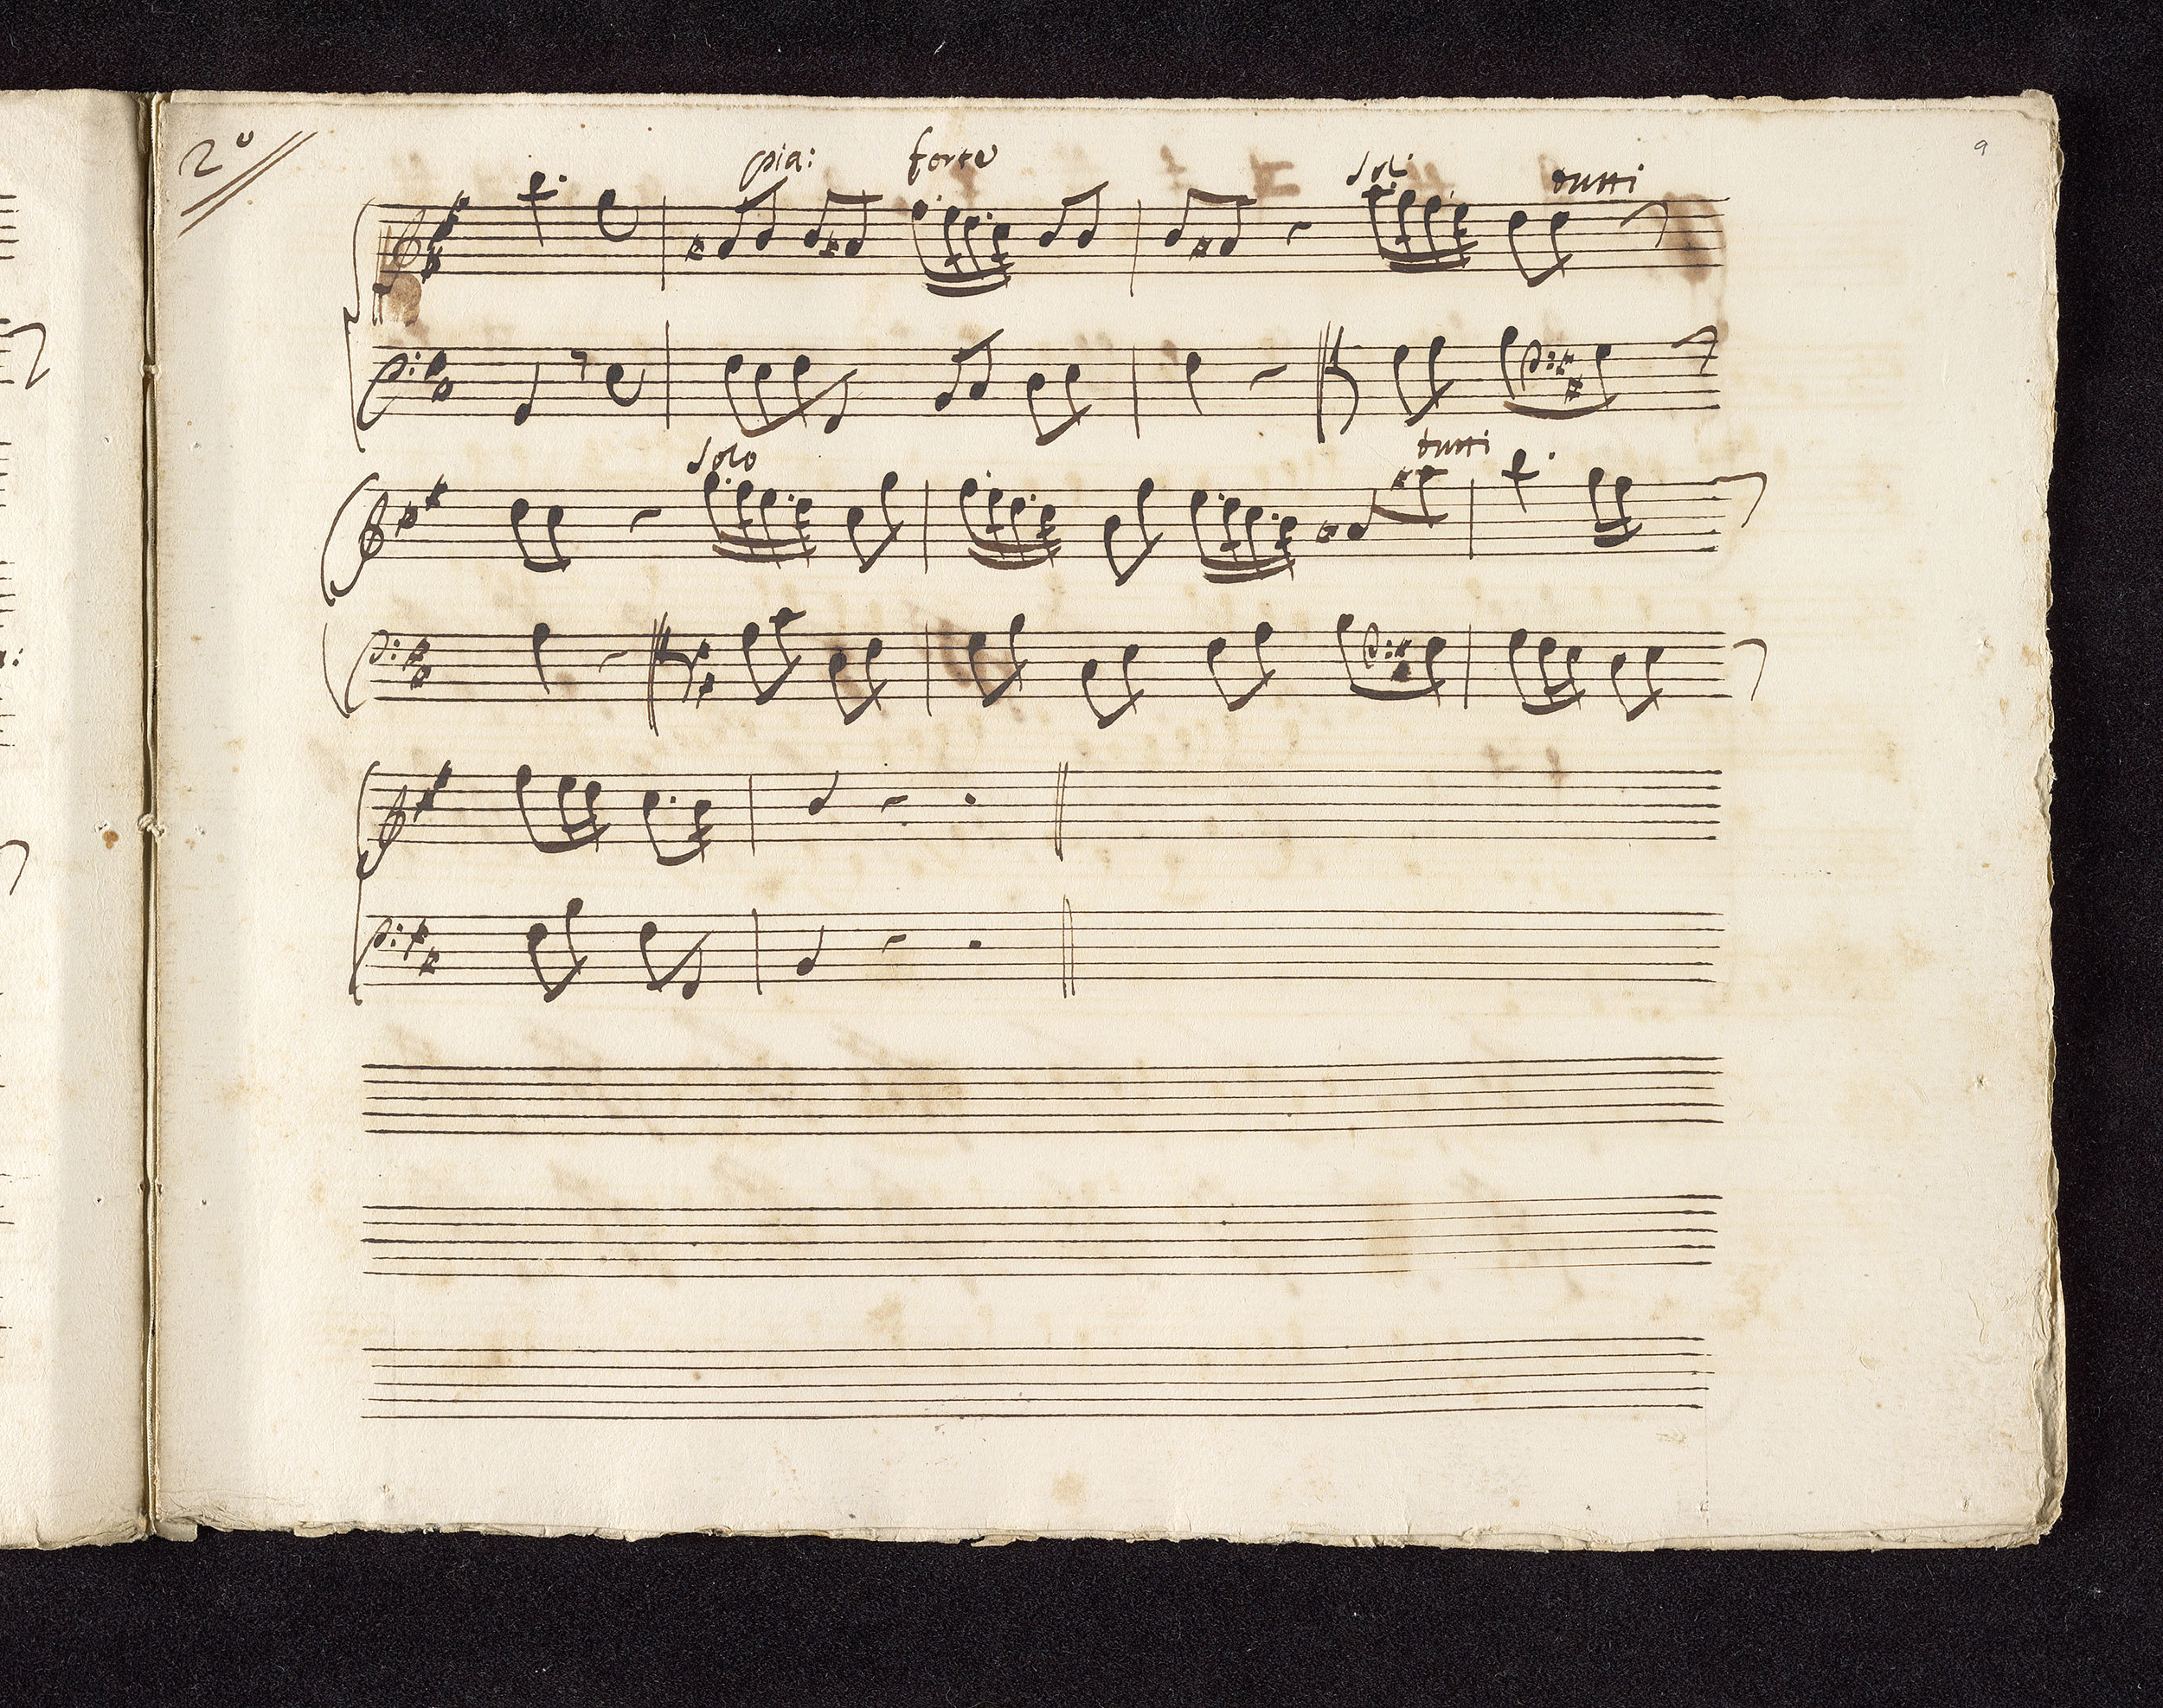 2º
9
pia: forte sol: tutti
solo tutti